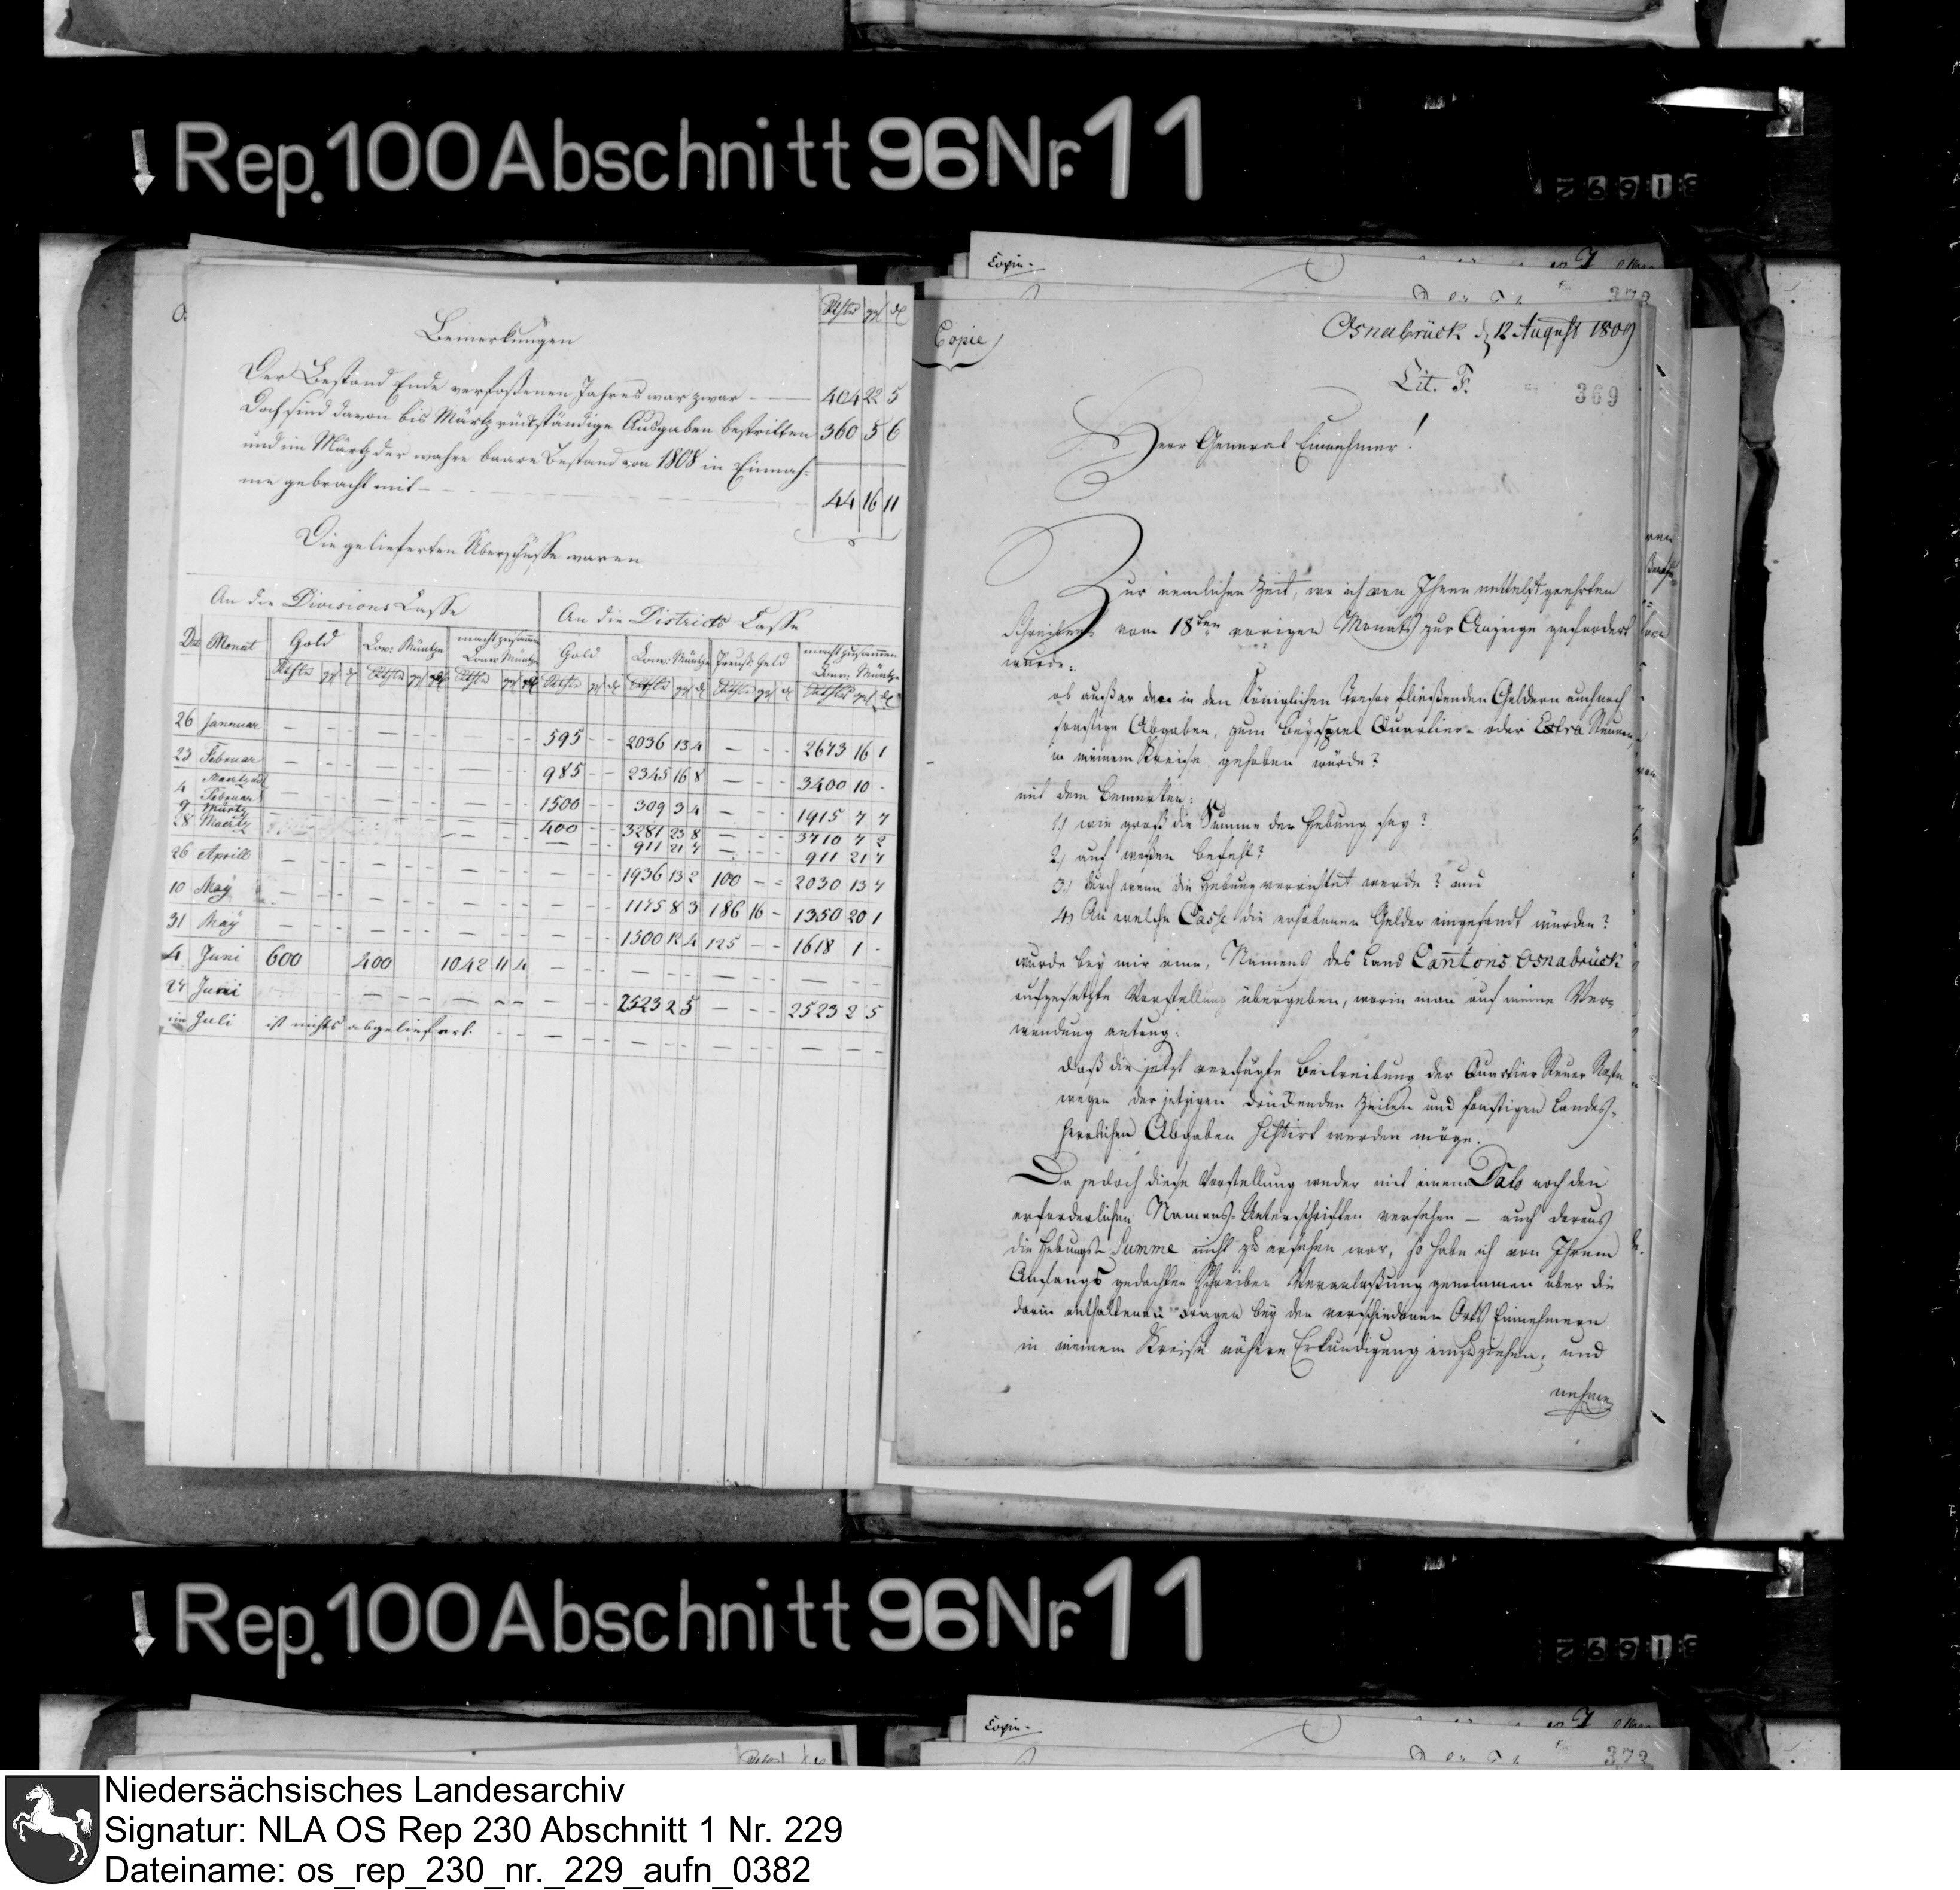 Rep. 100 Abschnitt 96 Nr. 11
Rthlr ggl d
Bemerkungen
Der Bestand Ende verfloßenen Jahres war zwar — 404 22 5
Doch sind davon bis Märtz rückständige Ausgaben bestritten 360 5 6
und im Märtz der wahre baare Bestand von 1808 in Einnah-
me gebracht mit — 44 16 11
Die gelieferten Überschüsse waren
An die Divisions Casse An die Districts Casse
Dat Monat Gold Conv: Müntze macht zusammen Conv: Müntze Gold Conv: Müntze Preuß: Geld macht zusammen Conv: Müntze
26 Januar — — — 595 - - 2036 13 4 — 2673 16 1
23 Februar — — — 985 - - 2345 16 8 — 3400 10 -
4 Maertz Februar — — — 1500 - - 309 3 4 — 1915 7 7
9 Märtz — — — 400 - - 3281 23 8 — 3710 7 2
28 Maertz — — — — 911 21 7 — 911 21 7
26 Aprill — — — — 1936 13 2 100 - - 2030 13 7
10 May — — — — 1175 8 3 186 16 - 1350 20 1
31 May — — — — 1500 12 4 125 - - 1618 1 -
4 Juni 600 400 1042 11 4 — — — —
27 Juni — — — — 2523 2 5 — 2523 2 5
im Juli ist nichts abgeliefert. — — — —
Copie
Copie
Osnabrück d 12 August 1809
Lit. F.
369
Herr General Einnehmer!
Zur nemlichen Zeit, wo ich von Ihnen mittelst geehrten
Schreibens vom 18ten vorigen Monats zur Anzeige gefordert
wurde:
ob außer den in den Königlichen Tresor fließenden Geldern auch noch
sonstige Abgaben, zum Beyspiel Quartier- oder Extra Steuern,
in meinem Kreise gehoben würde?
mit dem Bemerken:
1.) wie groß die Summe der Hebung sey?
2.) auf weßen Befehl?
3.) durch wenn die Hebung verrichtet werde? und
4.) An welche Casse die erhobenen Gelder eingesandt würden?
wurde bey mir eine, Namens des Land Cantons Osnabrück
aufgesetzte Vorstellung übergeben, worin man auf meine Ver-
wendung antrug:
daß die jetzt verfügte Beitreibung der Quartier Steuer Reste
wegen der jetzigen drückenden Zeiten und sonstigen Landes-
herrlichen Abgaben sistirt werden möge.
Da jedoch diese Vorstellung weder mit einem Dato noch den
erforderlichen Namens-Unterschriften versehen — auch daraus
die Hebungs-Summe nicht zu ersehen war, so habe ich von Ihrem
Anfangs gedachten Schreiben Veranlaßung genommen über die
darin enthaltenen Fragen bey den verschiedenen Orts Einnehmern
in meinem Kreise nähere Erkundigung einzuziehen, und
nehme
Rep. 100 Abschnitt 96 Nr. 11
Copie
373
Niedersächsisches Landesarchiv
Signatur: NLA OS Rep 230 Abschnitt 1 Nr. 229
Dateiname: os_rep_230_nr._229_aufn_0382